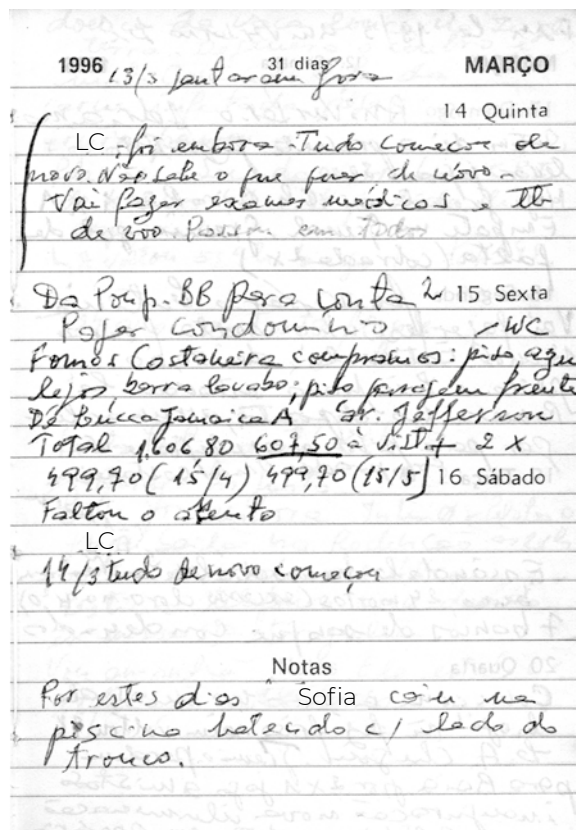 1996 31 dias MARÇO
13/3 jantaram fora
14 Quinta
LC foi embora. Tudo começou de
novo. Não sabe o que quer de novo.
Vai fazer exames médicos e tb
de voo
Da Poup. BB para conta 15 Sexta
Pagar condomínio WC
Fomos Costaneira compramos: piso azu
lejos, barra lavabo; piso garagem frente
De Lucca Jamaica A Jefferson
Total 1.606 80 607,50 à vist + 2 x
499,70 (15/4) 499,70 (15/5) 16 Sábado
Faltou o
LC
14/3 tudo de novo começou
Notas
Por estes dias Sofia caiu na
piscina batendo c/ lado do
tronco.